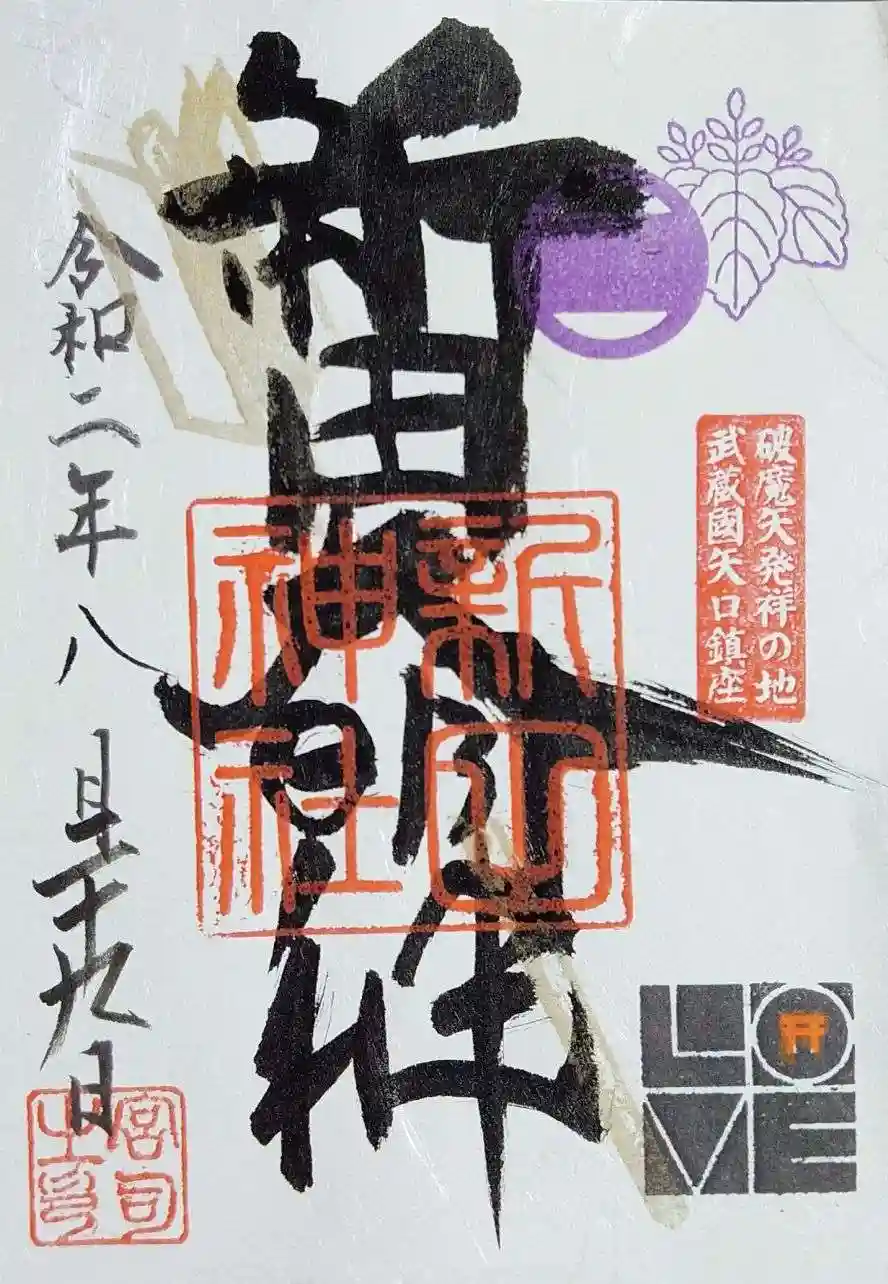 破魔矢発祥の地
武蔵國矢口鎮座
新田大明神
新田
神社
令和二年八月二十九日
宮司
之印
LOVE